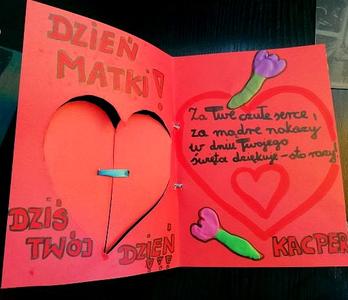 DZIEŃ
MATKI!
DZIŚ
TWÓJ DZIEŃ!!!
Za Twe czułe serce,
za mądre nakazy
w dniu Twojego
święta dziękuję - sto razy!
KACPER